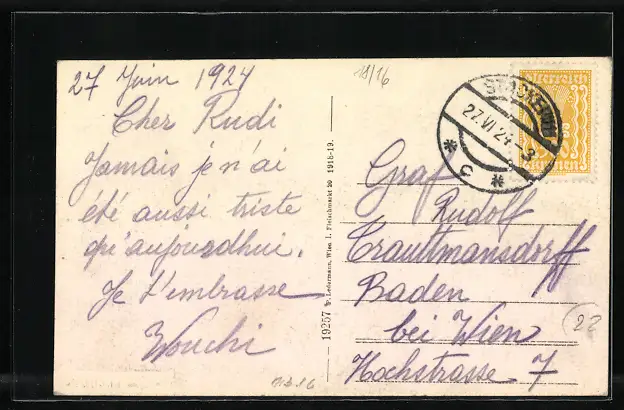 27 Juin 1924
Cher Rudi
Jamais je n'ai
été aussi triste
qu'aujourdhui.
Je t'embrasse
Wouchi
18/16
19257 Br. Ledermann, Wien I. Fleischmarkt 20 1918-19.
27.VI.24-3
* c *
Graf
Rudolf
Trauttmansdorff
Baden
bei Wien
Hochstrasse 7
22